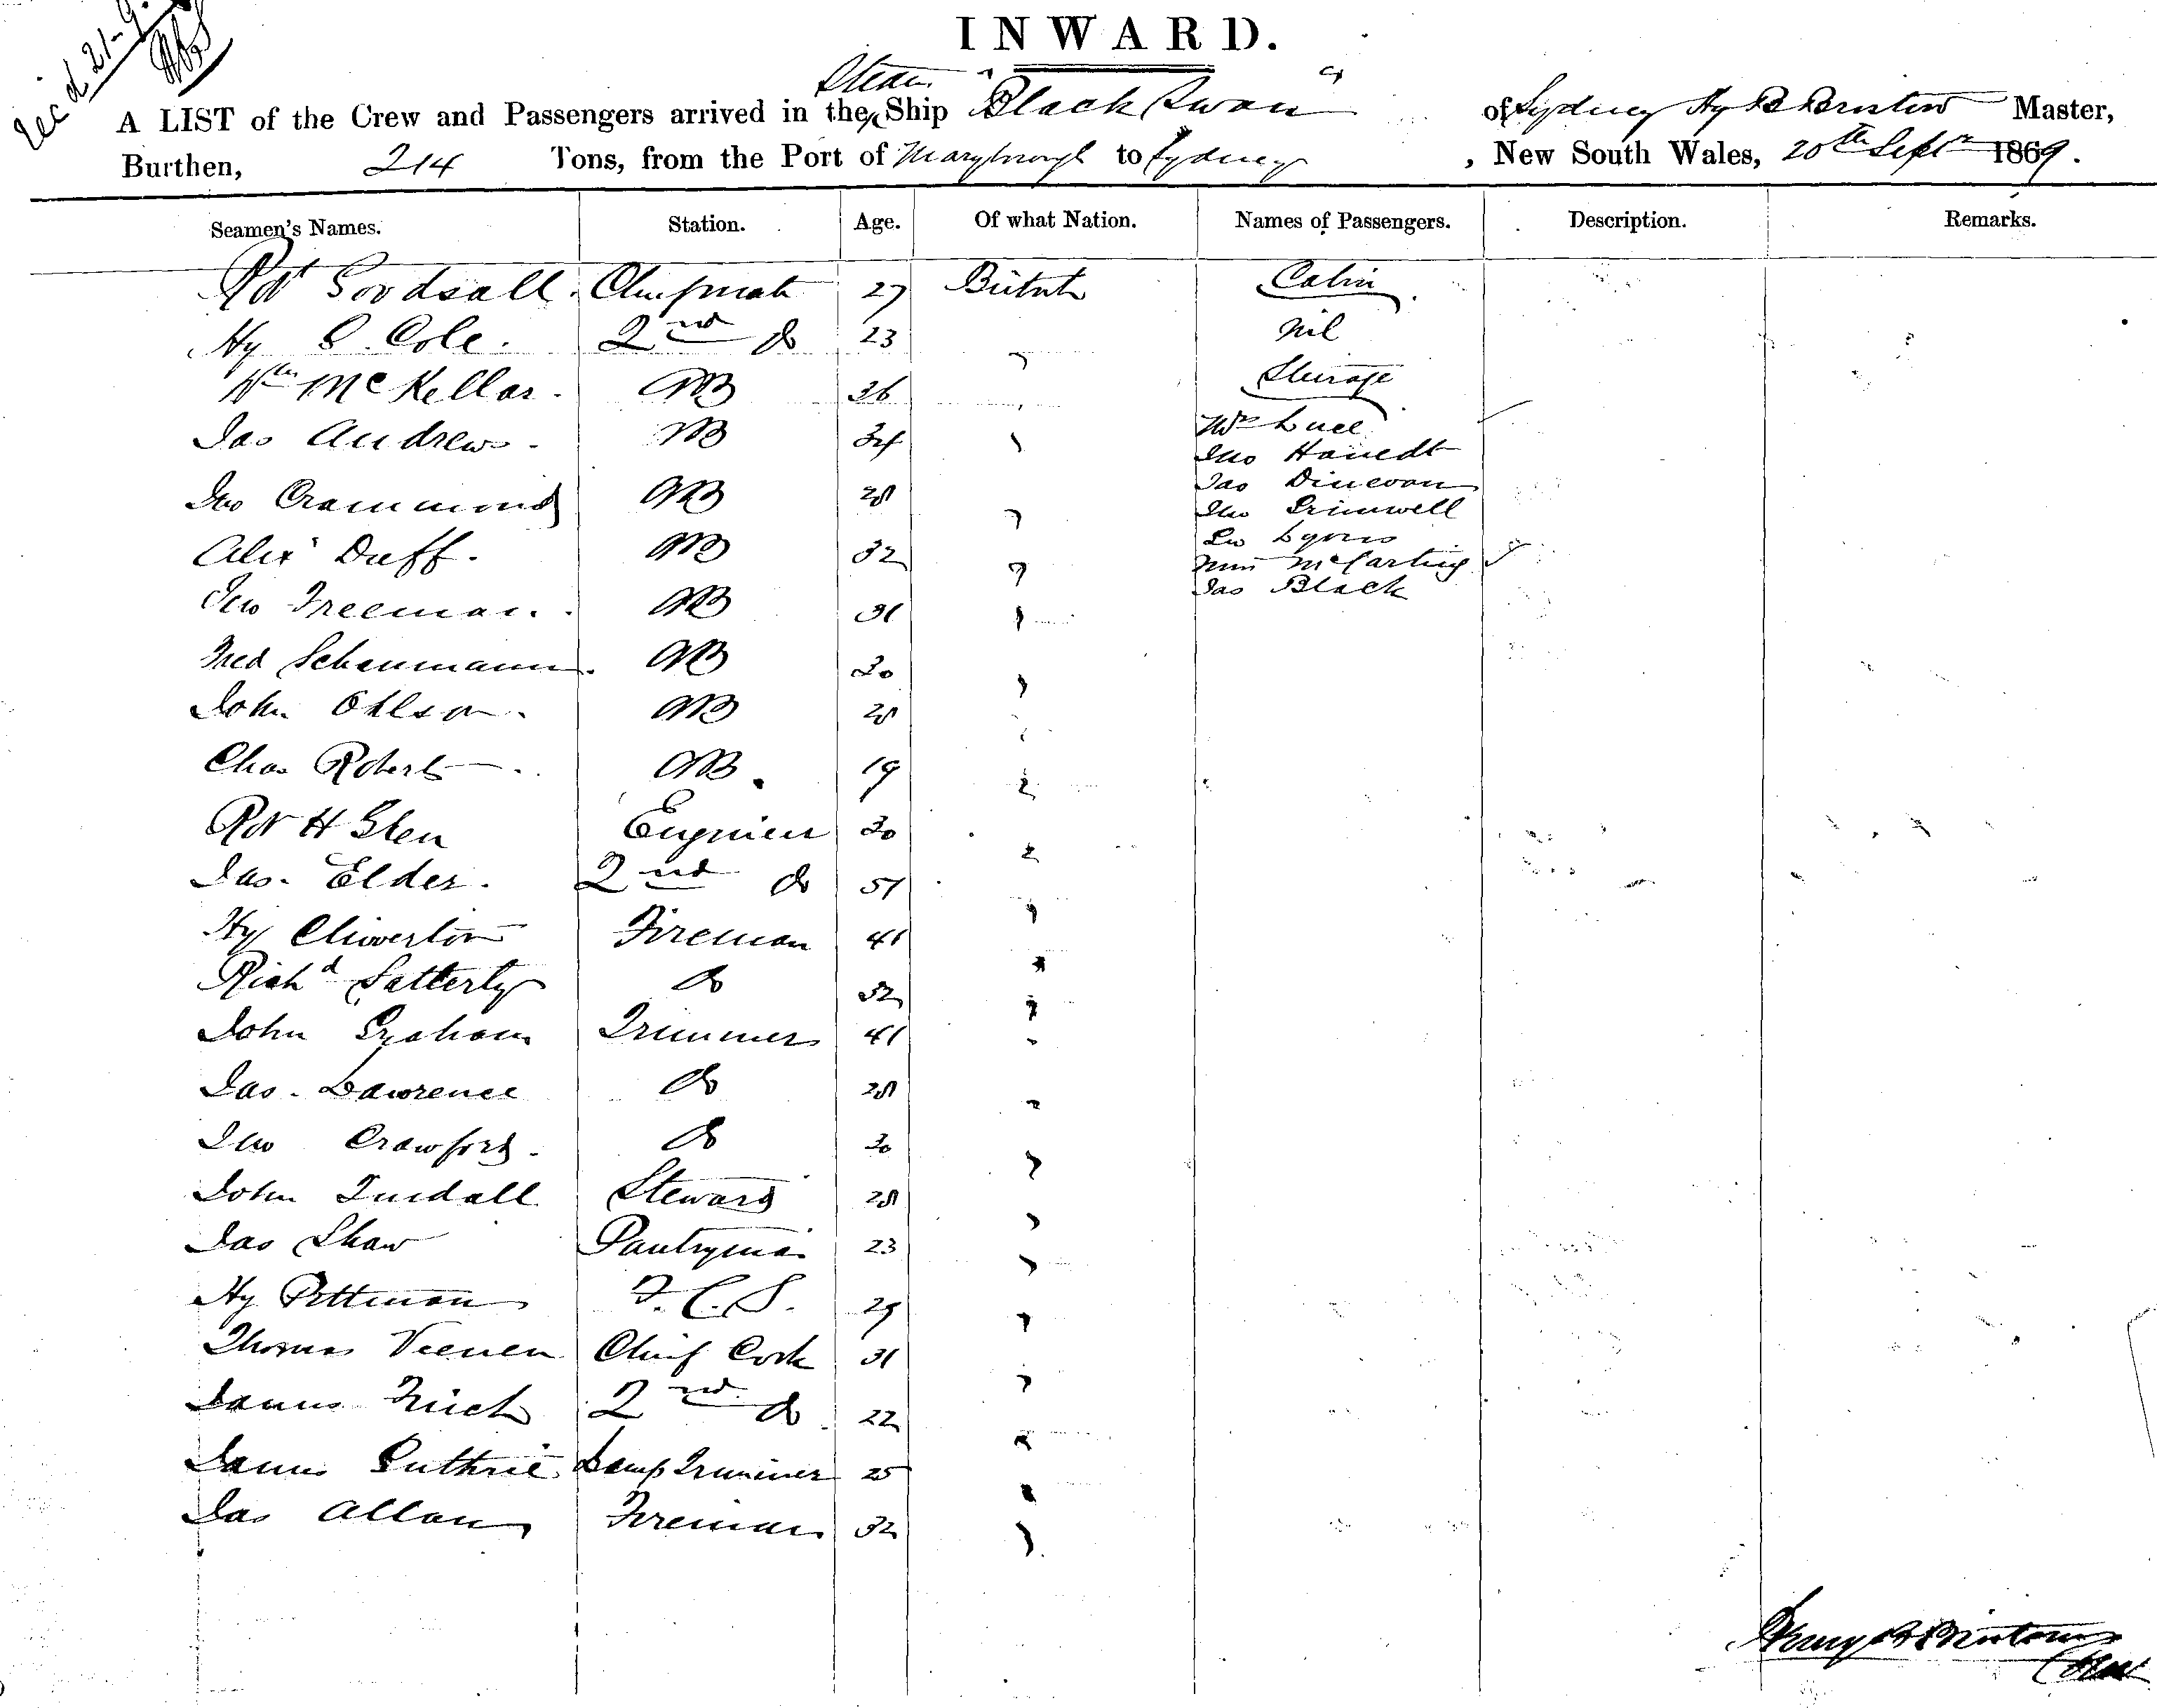 Rec'd 21-9-
INWARD.
A LIST of the Crew and Passengers arrived in the Steam Ship "Black Swan" of Sydney Hy B Master,
Burthen, 214 Tons, from the Port of Maryborough to Sydney , New South Wales, 20th Septr 1869.
Seamen's Names. Station. Age. Of what Nation. Names of Passengers. Description. Remarks.
Robt Goodsall. Chief mate 27 British Cabin
Hy S. Cole. 2nd do 23 " nil
Wm McKellar. AB 36 " Steerage
Jas Andrews. AB 34 " Wm Luce
Jno Hanedt
Jno Crammond AB 28 " Jas Dinevan
Jno Grimwell
Alexr Duff. AB 32 " Lyons
McCarthy
Jno Freeman. AB 31 " Jas Black
Fred Schanmann. AB 30 "
John Ohlson. AB 28 "
Chas Roberts. AB. 19 "
Robt H Glen Engineer 30 "
Jas. Elder. 2nd do 51 "
Hy Cliverton Fireman 41 "
Richd Satterly do 32 "
John Graham Trimmer 41 "
Jas. Lawrence do 28 "
Jno Crawford. do 30 "
John Tindall Steward 28 "
Jas Shaw Pantryman 23 "
Hy Pittman F.C.S. 29 "
Thomas Veenen Chief Cook 31 "
James Finch 2nd do 22 "
James Guthrie Lamp Trimmer 25 "
Jas Allan Fireman 32 "
Henry B